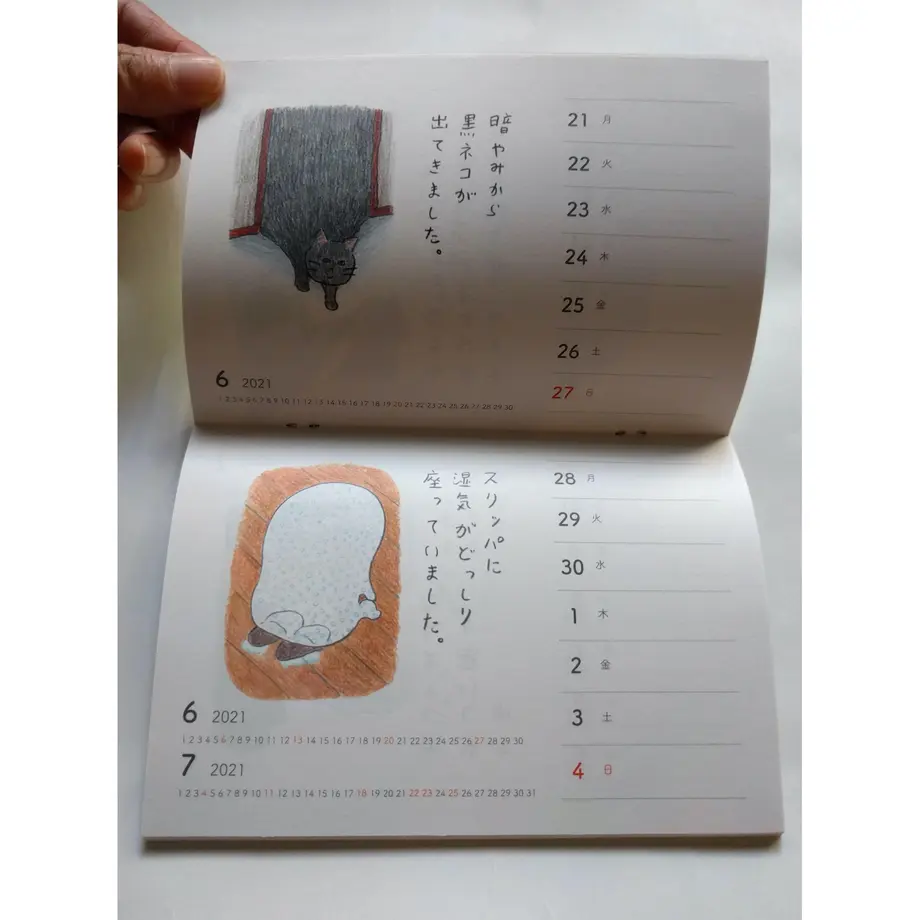 暗やみから
黒ネコが
出てきました。
21 月
22 火
23 水
24 木
25 金
26 土
27 日
6 2021
1 2 3 4 5 6 7 8 9 10 11 12 13 14 15 16 17 18 19 20 21 22 23 24 25 26 27 28 29 30
スリッパに
湿気がどっしり
座っていました。
28 月
29 火
30 水
1 木
2 金
3 土
4 日
6 2021
1 2 3 4 5 6 7 8 9 10 11 12 13 14 15 16 17 18 19 20 21 22 23 24 25 26 27 28 29 30
7 2021
1 2 3 4 5 6 7 8 9 10 11 12 13 14 15 16 17 18 19 20 21 22 23 24 25 26 27 28 29 30 31